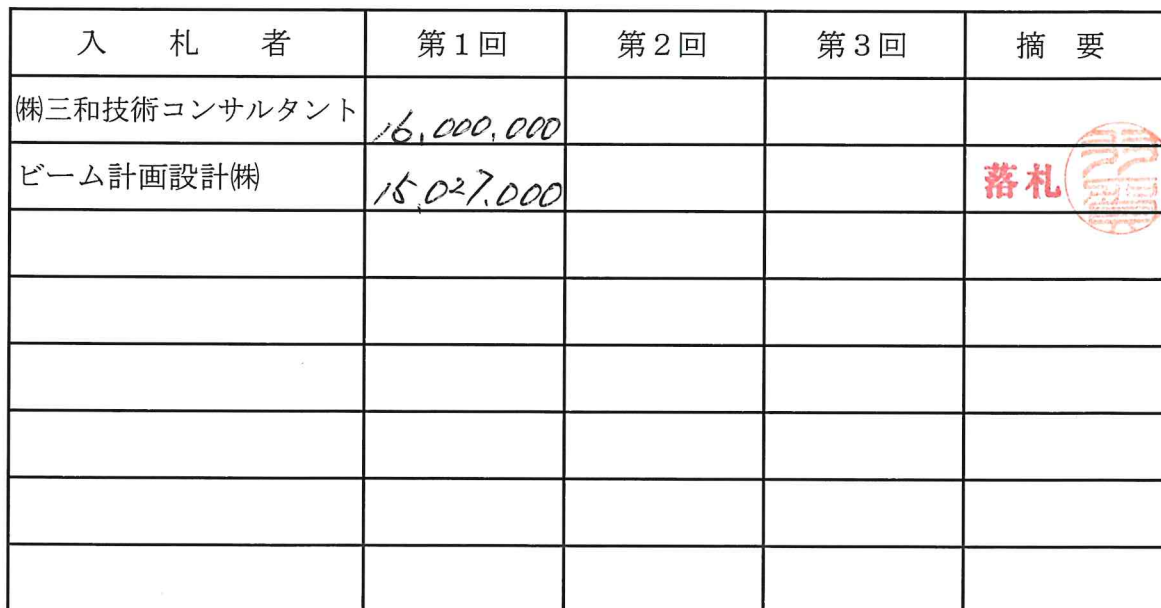 入 札 者 第1回 第2回 第3回 摘 要
㈱三和技術コンサルタント 16,000,000
ビーム計画設計㈱ 15,027,000 落札